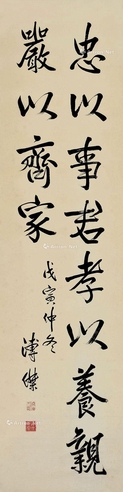 忠以事君孝以養親
嚴以齊家
戊寅仲冬
溥傑